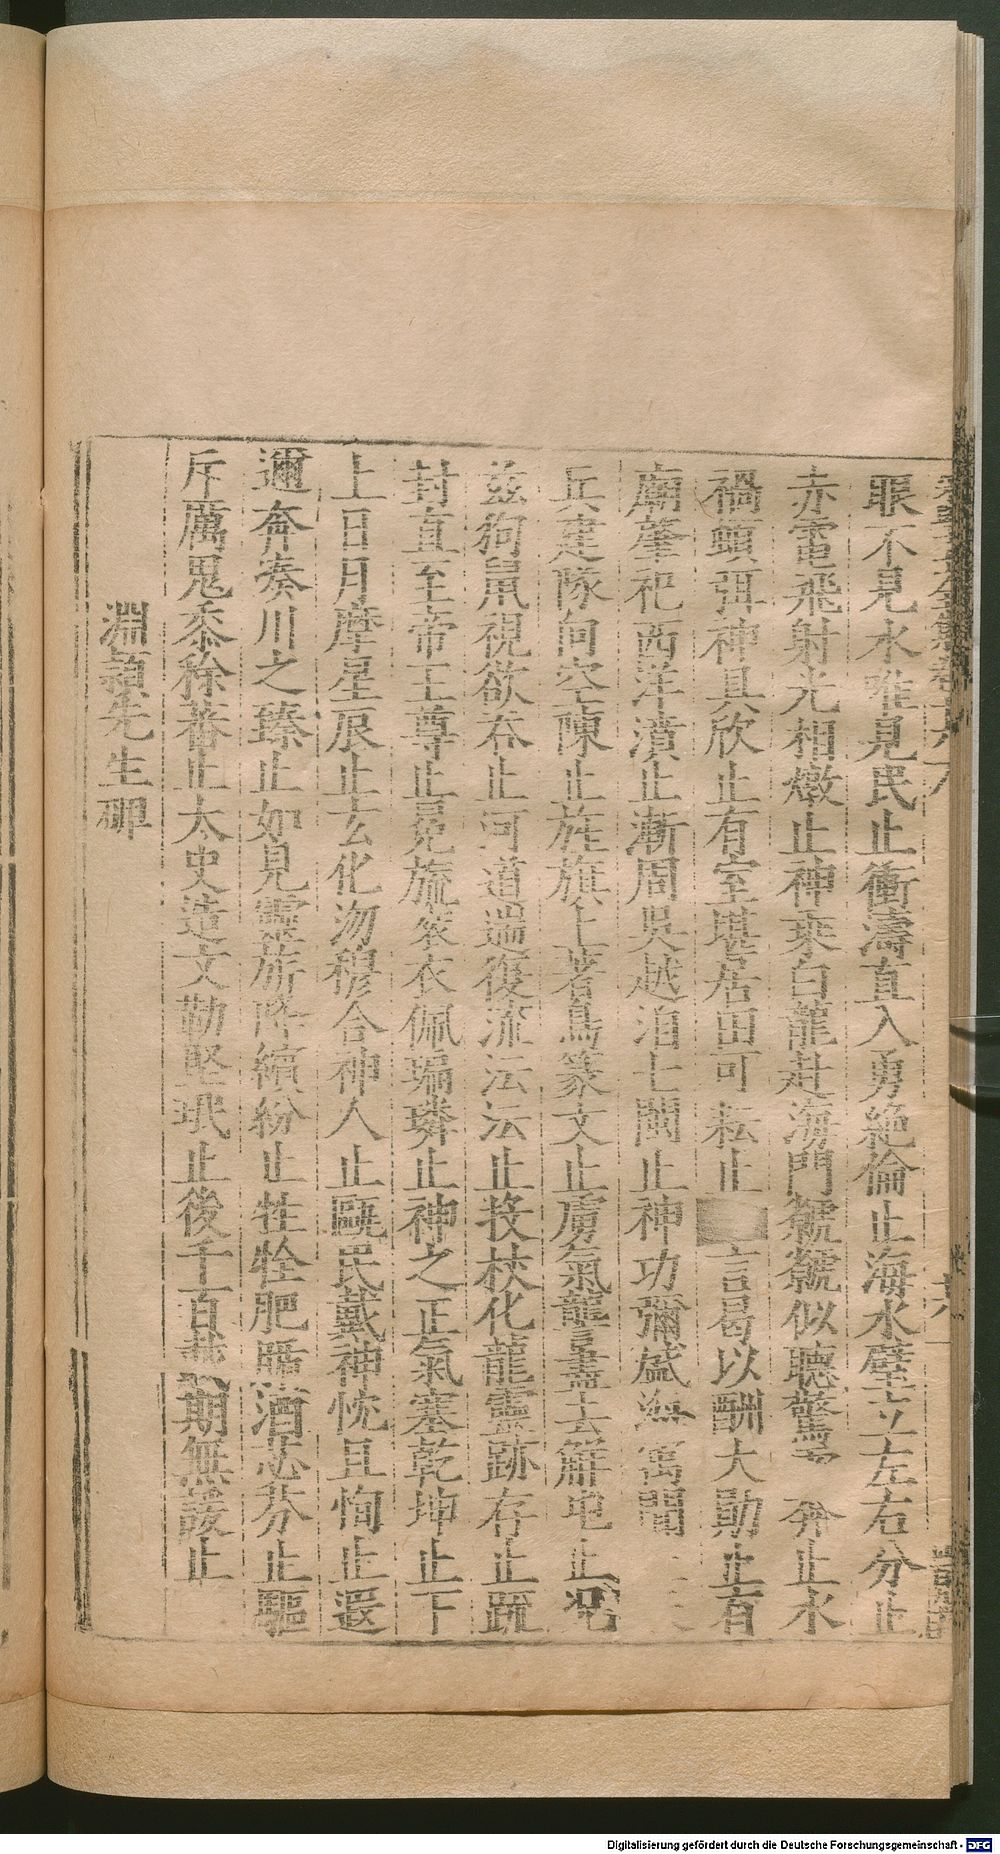 眼不見水唯見民止衝濤直入勇絶倫止海水壁立左右分止
赤電飛射光相燉止神乘白龍赴海門虩虩似聽驚 分止水
禍頓弭神具欣止有室堪居田可耘止 言曷以酬大勛止有
廟肇祀西洋濆止漸周吳越洎七閩止神功彌盛無寓聞
兵建隊向空陳止旌旗上著鳥篆文止虜氣讋 去觧屯止况
兹狗鼠視欲吞止河道遄復流沄沄止投杖化龍靈跡存止疏
封直至帝王尊止冕旒衮衣佩瑞璘止神之正氣塞乾坤止下
上日月摩星辰止玄化沕穆合神人止甌民戴神忱且恂止遐
邇奔奏川之臻止如見靈旂降繽紛止牲牷肥腯酒苾芬止驅
斥厲鬼黍稌蕃止太史造文勒堅珉止後千百 期無諼止
淵頴先生碑
Digitalisierung gefördert durch die Deutsche Forschungsgemeinschaft - DFG